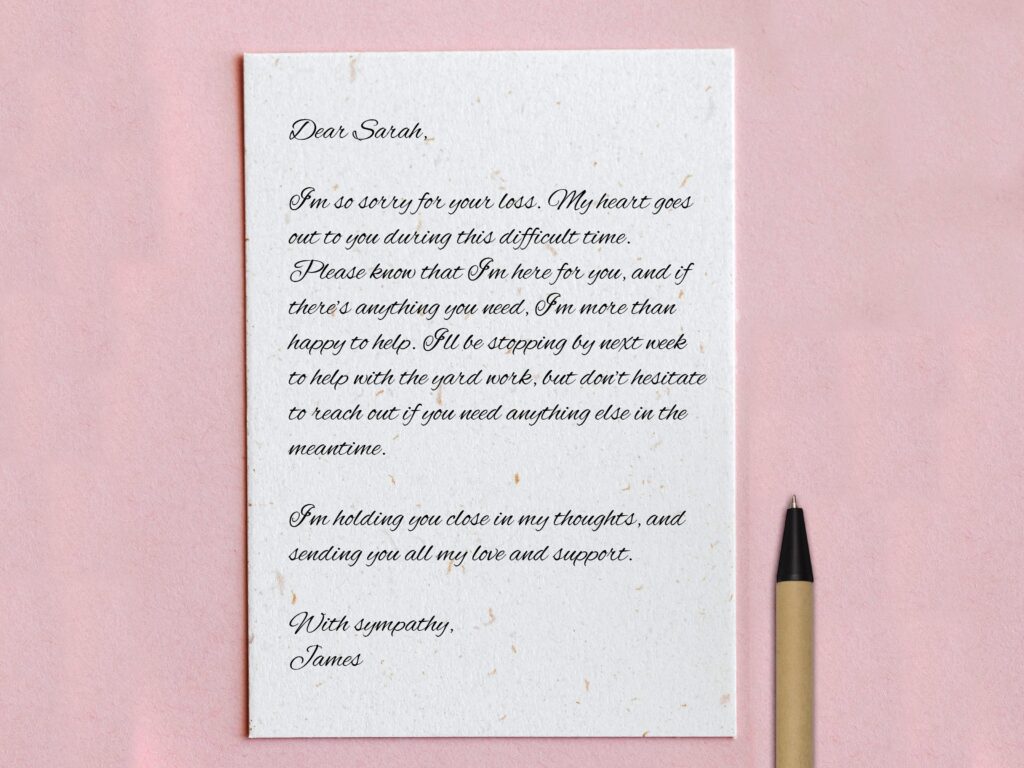 Dear Sarah,
I'm so sorry for your loss. My heart goes
out to you during this difficult time.
Please know that I'm here for you, and if
there's anything you need, I'm more than
happy to help. I'll be stopping by next week
to help with the yard work, but don't hesitate
to reach out if you need anything else in the
meantime.
I'm holding you close in my thoughts, and
sending you all my love and support.
With sympathy,
James